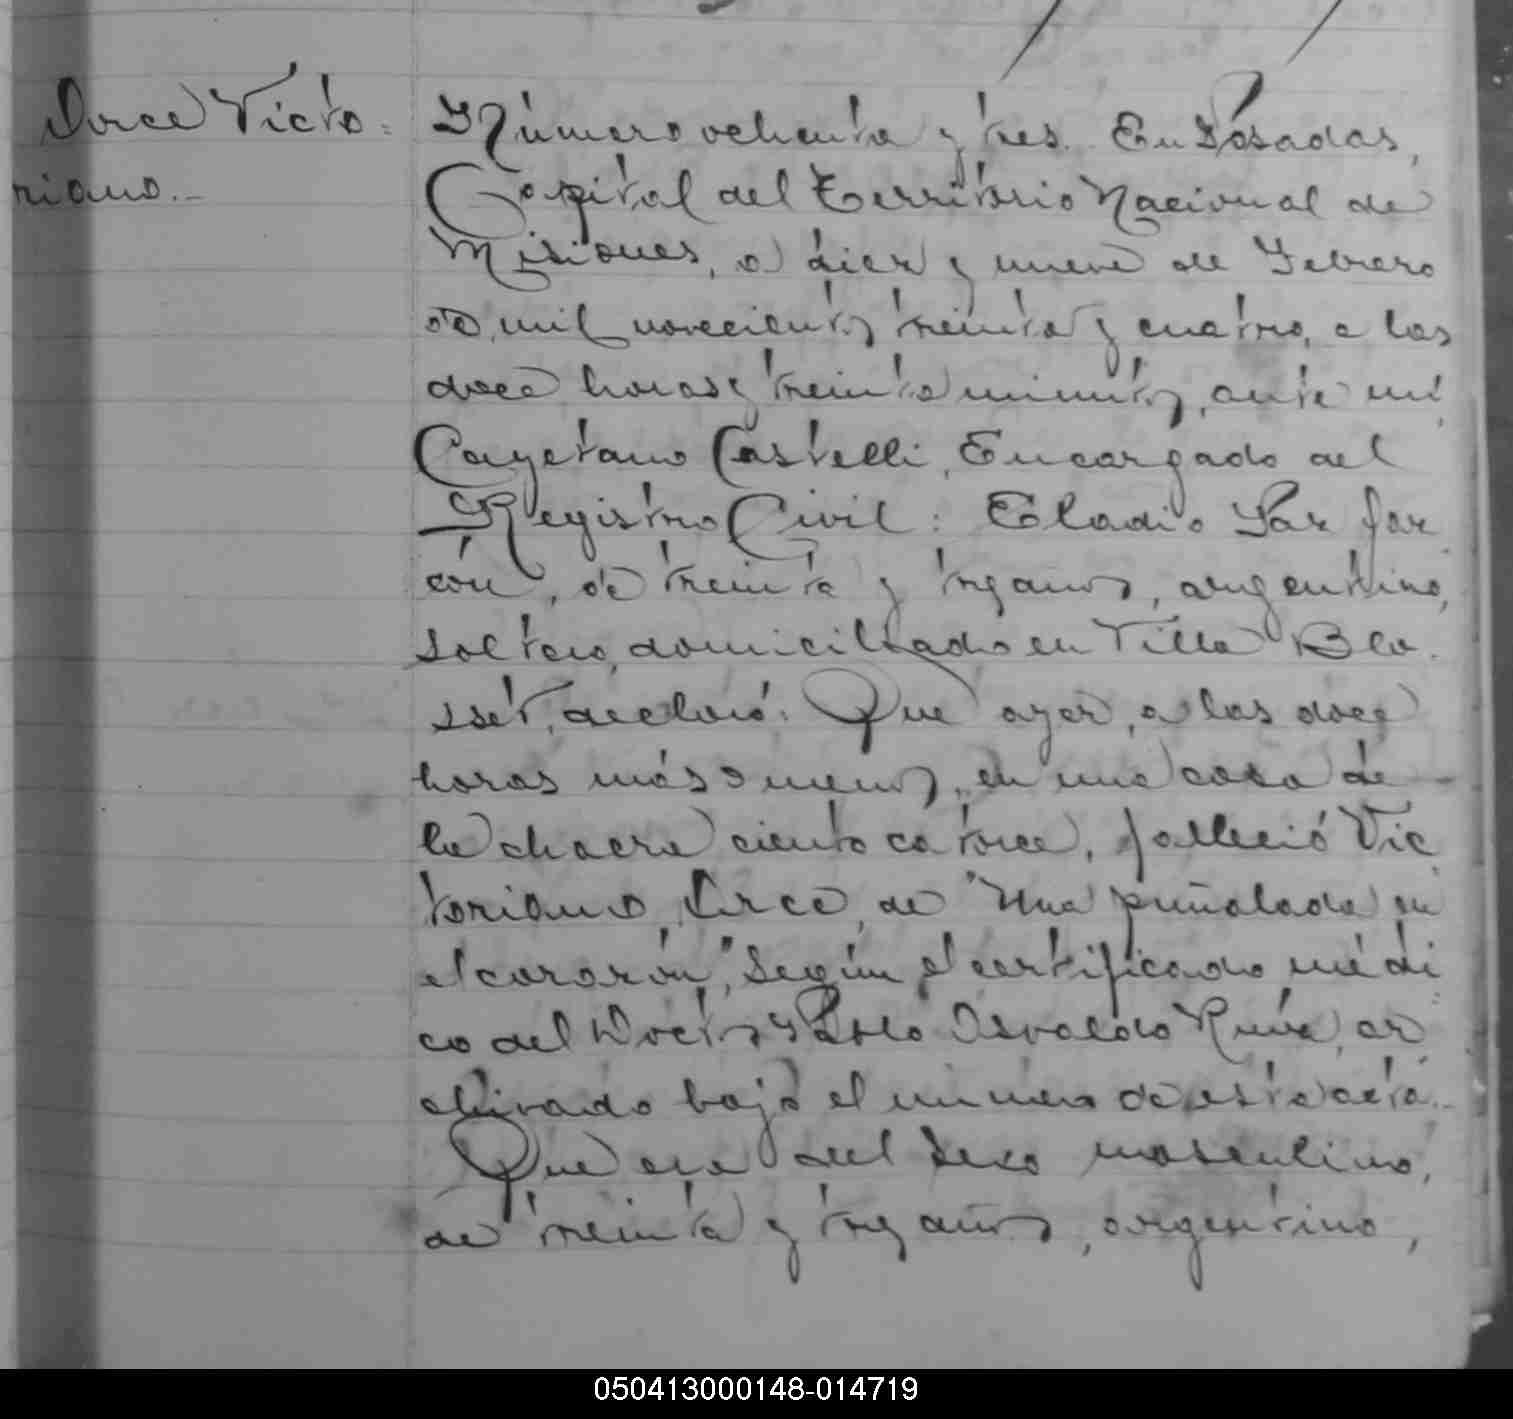 Arce Victo-
riano.-
Número ochenta y tres. En Posadas,
Capital del Territorio Nacional de
Misiones, a diez y nueve de Febrero
de mil novecientos treinta y cuatro, a las
doce horas y treinta minutos, ante mí,
Cayetano Castelli, Encargado del
Registro Civil: Eladio
de treinta y tres años, argentino,
soltero, domiciliado en Villa Blo-
sset, declaró: Que ayer, a las doce
horas más o menos, en una casa de
la chacra ciento catorce, falleció Vic
toriano Arce, de "Una puñalada en
el corazón", según el certificado médi
co del Doctor Pablo Osvaldo ar
chivado bajo el número de esta acta.-
Que era del sexo masculino,
de treinta y tres años, argentino,
050413000148-014719